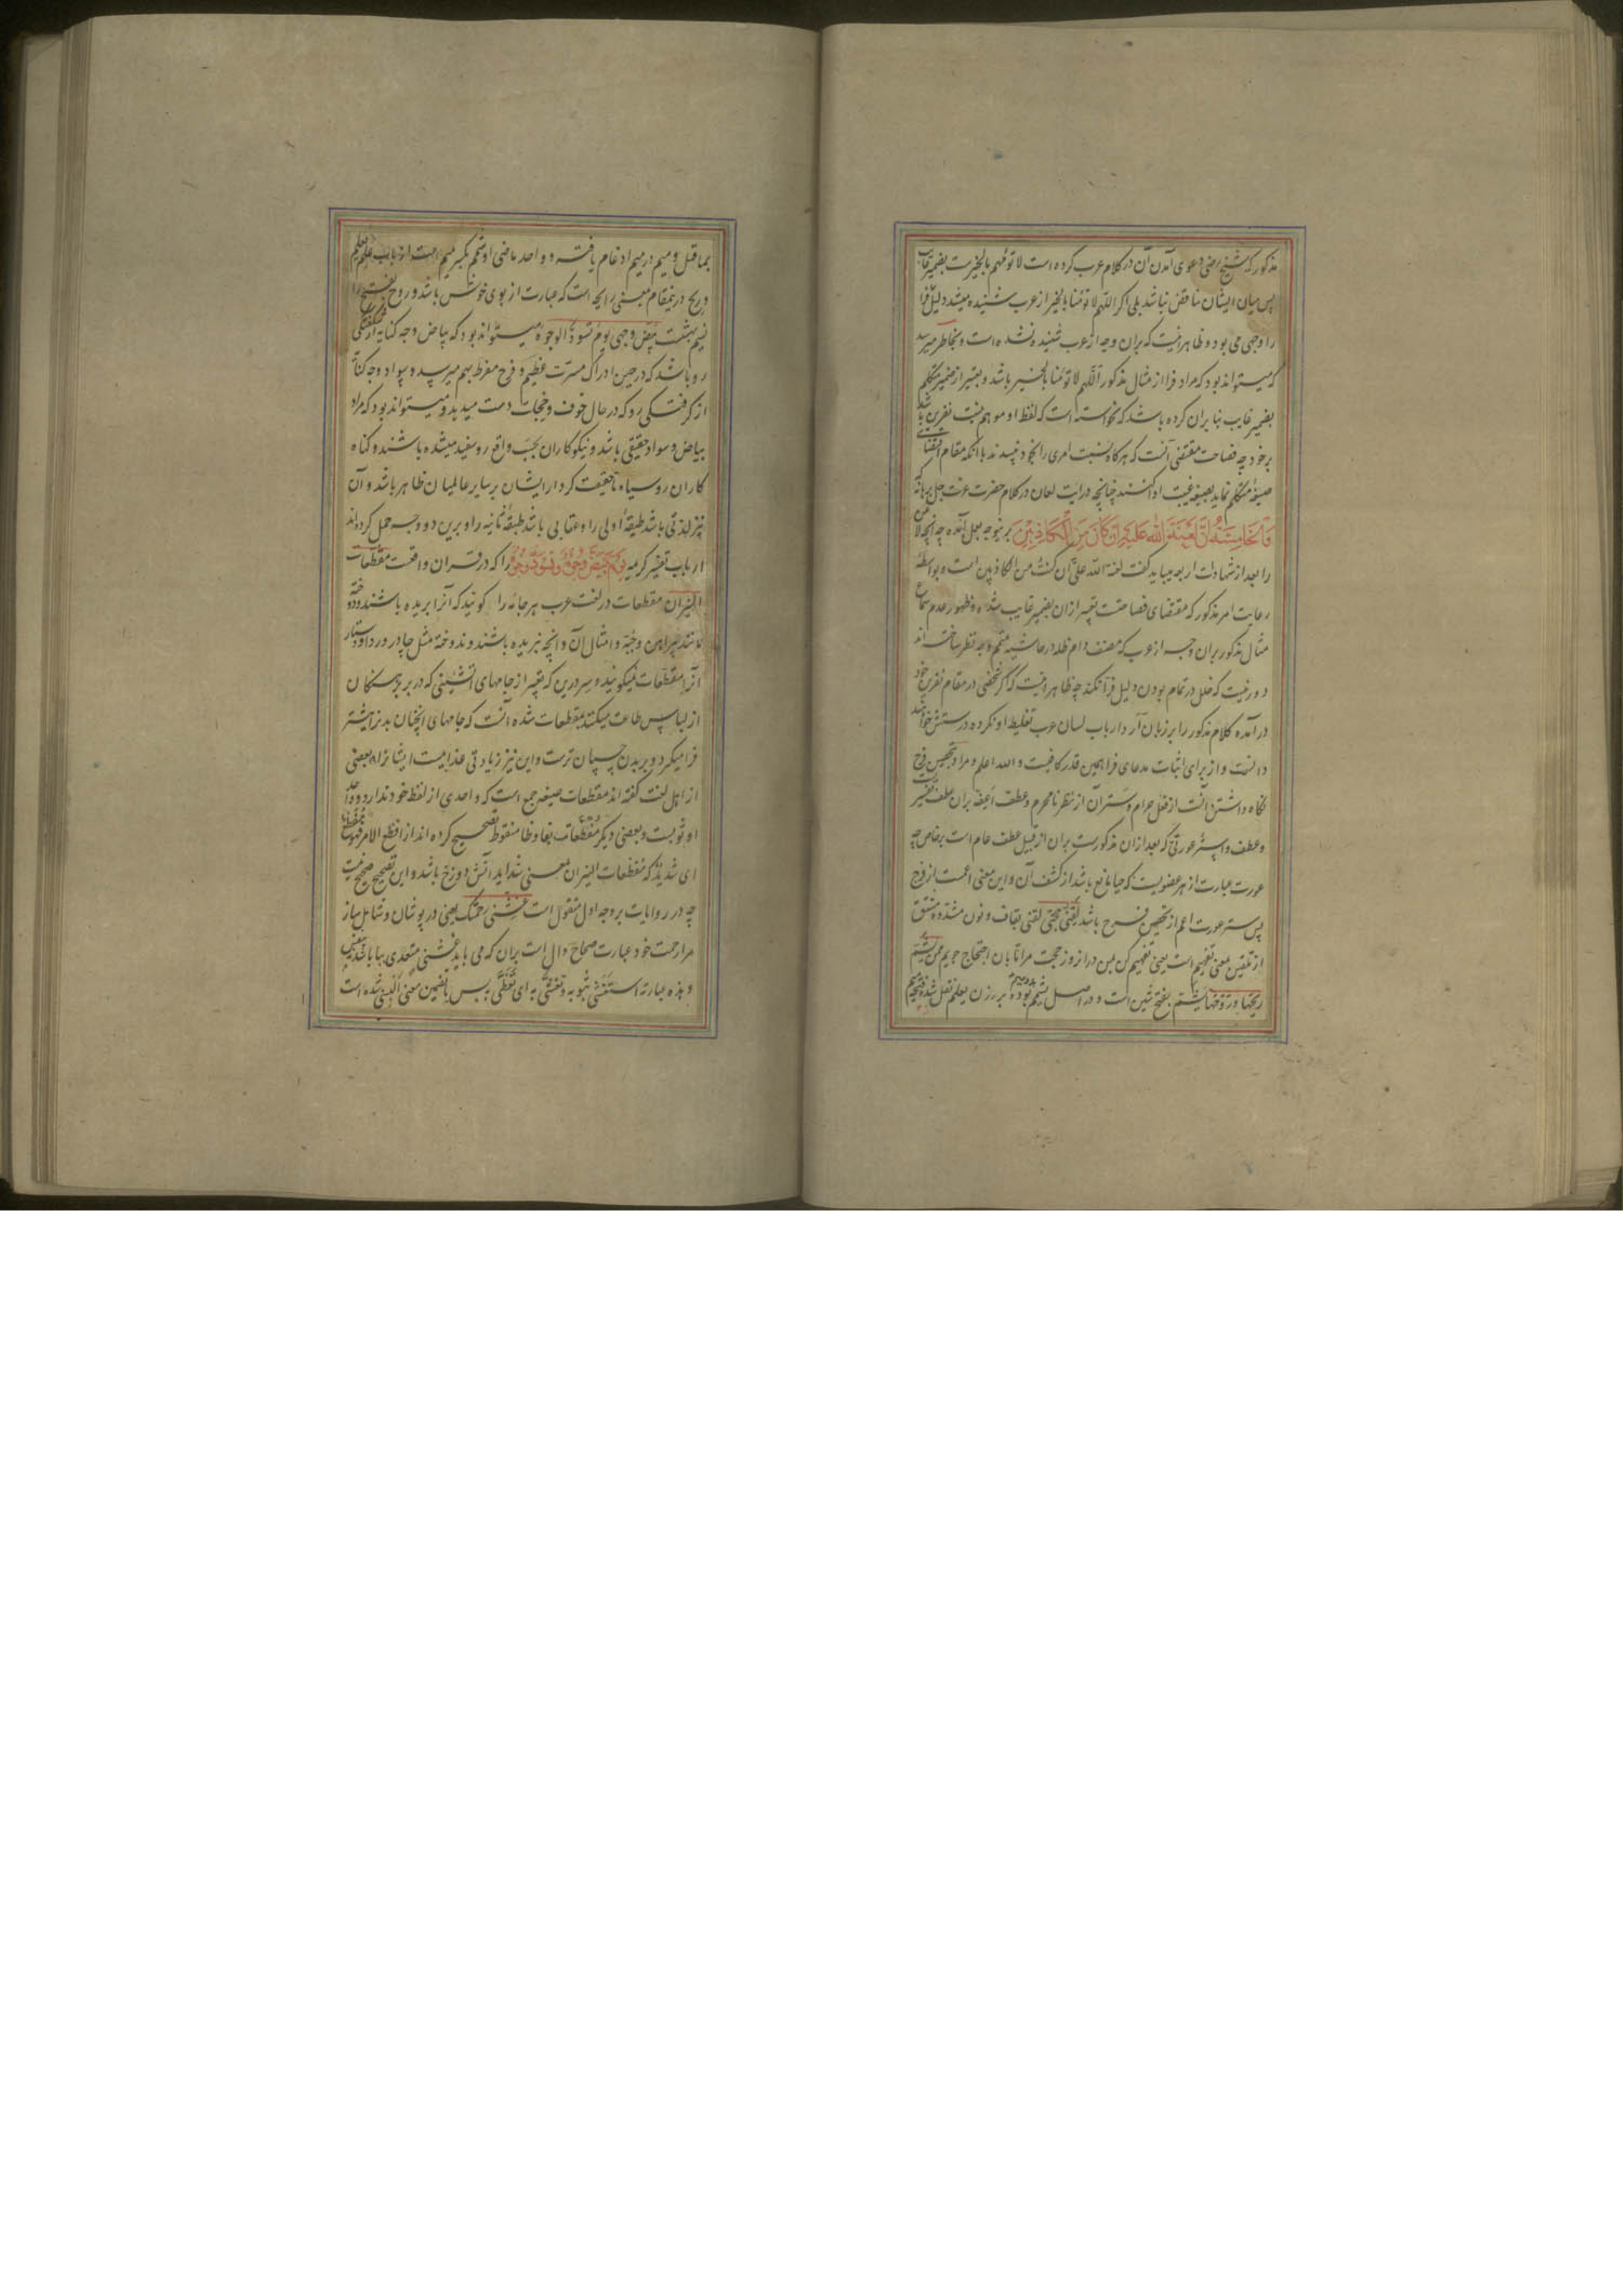 مذکور که شیخ رضی دعوی آمدن آن در کلام عرب کرده است لا تؤمهم بالخیرست بضمیر غایب
پس میان ایشان تناقض نباشد بلی اگر اللهم لا تؤمنا بالخیر از عرب شنیده میشد دلیل فرا
را وجهی می بود و ظاهر نیست که بران وجه از عرب شنیده نشده است و بخاطر میرسد
که میتواند بود که مراد فرا از مثال مذکور اللهم لا تؤمنا بالخیر باشد و تعبیر از ضمیر متکلم
بضمیر غایب بنا بران کرده باشد که نخواسته است که لفظ او موهم نسبت نفرین باشد
برخود چه فصاحت مقتضی آنست که هرگاه نسبت امری را بخود نپسندند با انکه مقام اقتضای
صیغه متکلم نماید بصیغه غیبت ادا کنند چنانچه در ایت لعان در کلام حضرت عزت جل برهانه که
وَالْخَامِسَةُ أَنَّ لَعْنَةَ اللَّهِ عَلَيْهِ إِنْ كَانَ مِنَ الْكَاذِبِينَ برینوجه بعمل آمده چه آنچه لاعن
را بعد از شهادات اربعه میباید گفت لعنة الله علیّ ان کنتُ من الکاذبین است و بواسطهٔ
رعایت امر مذکور که مقتضای فصاحتست تعبیر ازان بضمیر غایب شده و ظهور عدم سماع
مثال مذکور بران وجه از عرب که مصنف دام ظله در حاشیه متمم وجه نظر ساخته اند
دور نیست که خلل در تمام بودن دلیل فرا نکند چه ظاهر نیست که اگر شخصی در مقام نفرین خود
در آمده کلام مذکور را بر زبان آرد ارباب لسان عرب تغلیط او نکرده درستش خواهند
دانست و از برای اثبات مدعای فرا همین قدر کافیست و الله اعلم و مراد بتحصین فرج
نگاه داشتن آنست از فعل حرام و ستر آن از نظر نامحرم و عطف اعفه بران عطف تفسیر
و عطف و استر عورتی که بعد ازان مذکورست بران از قبیل عطف عام است بر خاص چه
عورت عبارت از هر عضویست که حیا مانع باشد از کشف آن و این معنی اعمست از فرج
پس ستر عورت اعم از تحصین فرج باشد لقنی حجتی لقنی بقاف و نون مشدده مشتق
از تلقین بمعنی تفهیم است یعنی تفهیم کن بمن در از روز حجت مرا تا بان احتجاج جویم ممن یشم
ریحها و روحها یشم بفتح شین است و در اصل یشمم بوده بر وزن یعلم نقل شده فتحه میم
بماقبل و میم در میم ادغام یافته و واحد ماضی او شمم بکسر میم است از باب علم یعلم
و ریح درینمقام بمعنی رایحه است که عبارت از بوی خوش باشد و روح بفتح را
نسیم بهشت بیّض وجهی یوم تسود الوجوه میتواند بود که بیاض وجه کنایه از شکفتگی
رو باشد که در حین ادراک مسرت عظیم و فرح مفرط بهم میرسد و سواد وجه کنایه
از گرفتگی رو که در حال خوف و خجالت دست میدهد و میتواند بود که مراد
بیاض و سواد حقیقی باشد و نیکوکاران بحسب واقع روسفید میشده باشند و گناه
کاران روسیاه تا حقیقت کردار ایشان بر سایر عالمیان ظاهر باشد و آن
نیز لذتی باشد طبقهٔ اولی را و عتابی باشد طبقهٔ ثانیه را و برین دو وجه حمل کرده اند
ارباب تفسیر کریمه یوم تبیض وجوه و تسود وجوه را که در قران واقعست مقطعات
النیران مقطعات در لغت عرب هر جامه را گویند که آنرا بریده باشند و دوخته
مانند پیراهن و جبه و امثال آن و آنچه نبریده باشند و ندوخته مثل چادر و ردا و دستار
آنرا مقطعات نمیگویند و سر درین که تعبیر از جامهای آتشینی که در بر برهنگان
از لباس طاعت میکنند بمقطعات شده آنست که جامهای انچنان بدنرا بیشتر
فرا میگیرد و بر بدن چسپان ترست و این نیز زیادتی عذابیست ایشانرا و بعضی
از اهل لغت گفته اند مقطعات صیغه جمع است که واحدی از لفظ خود ندارد و واحد
او ثوبست و بعضی دیگر مفظعات بفا و ظا منقوط تصحیح کرده اند از افظع الامر فهو مفظع
ای شدید که مفظعات النیران بمعنی شداید آتش دوزخ باشد و این تصحیح صحیح نیست
چه در روایات بر وجه اول منقول است غشنی رحمتک یعنی در پوشان و شامل ساز
مرا رحمت خود عبارت صحاح دال است بران که می باید غشنی متعدی ببا باشد یعنی
و هذه عبارته استغشی بثوبه و تغشی به ای تغطی به پس یا تضمین معنی البس شده است